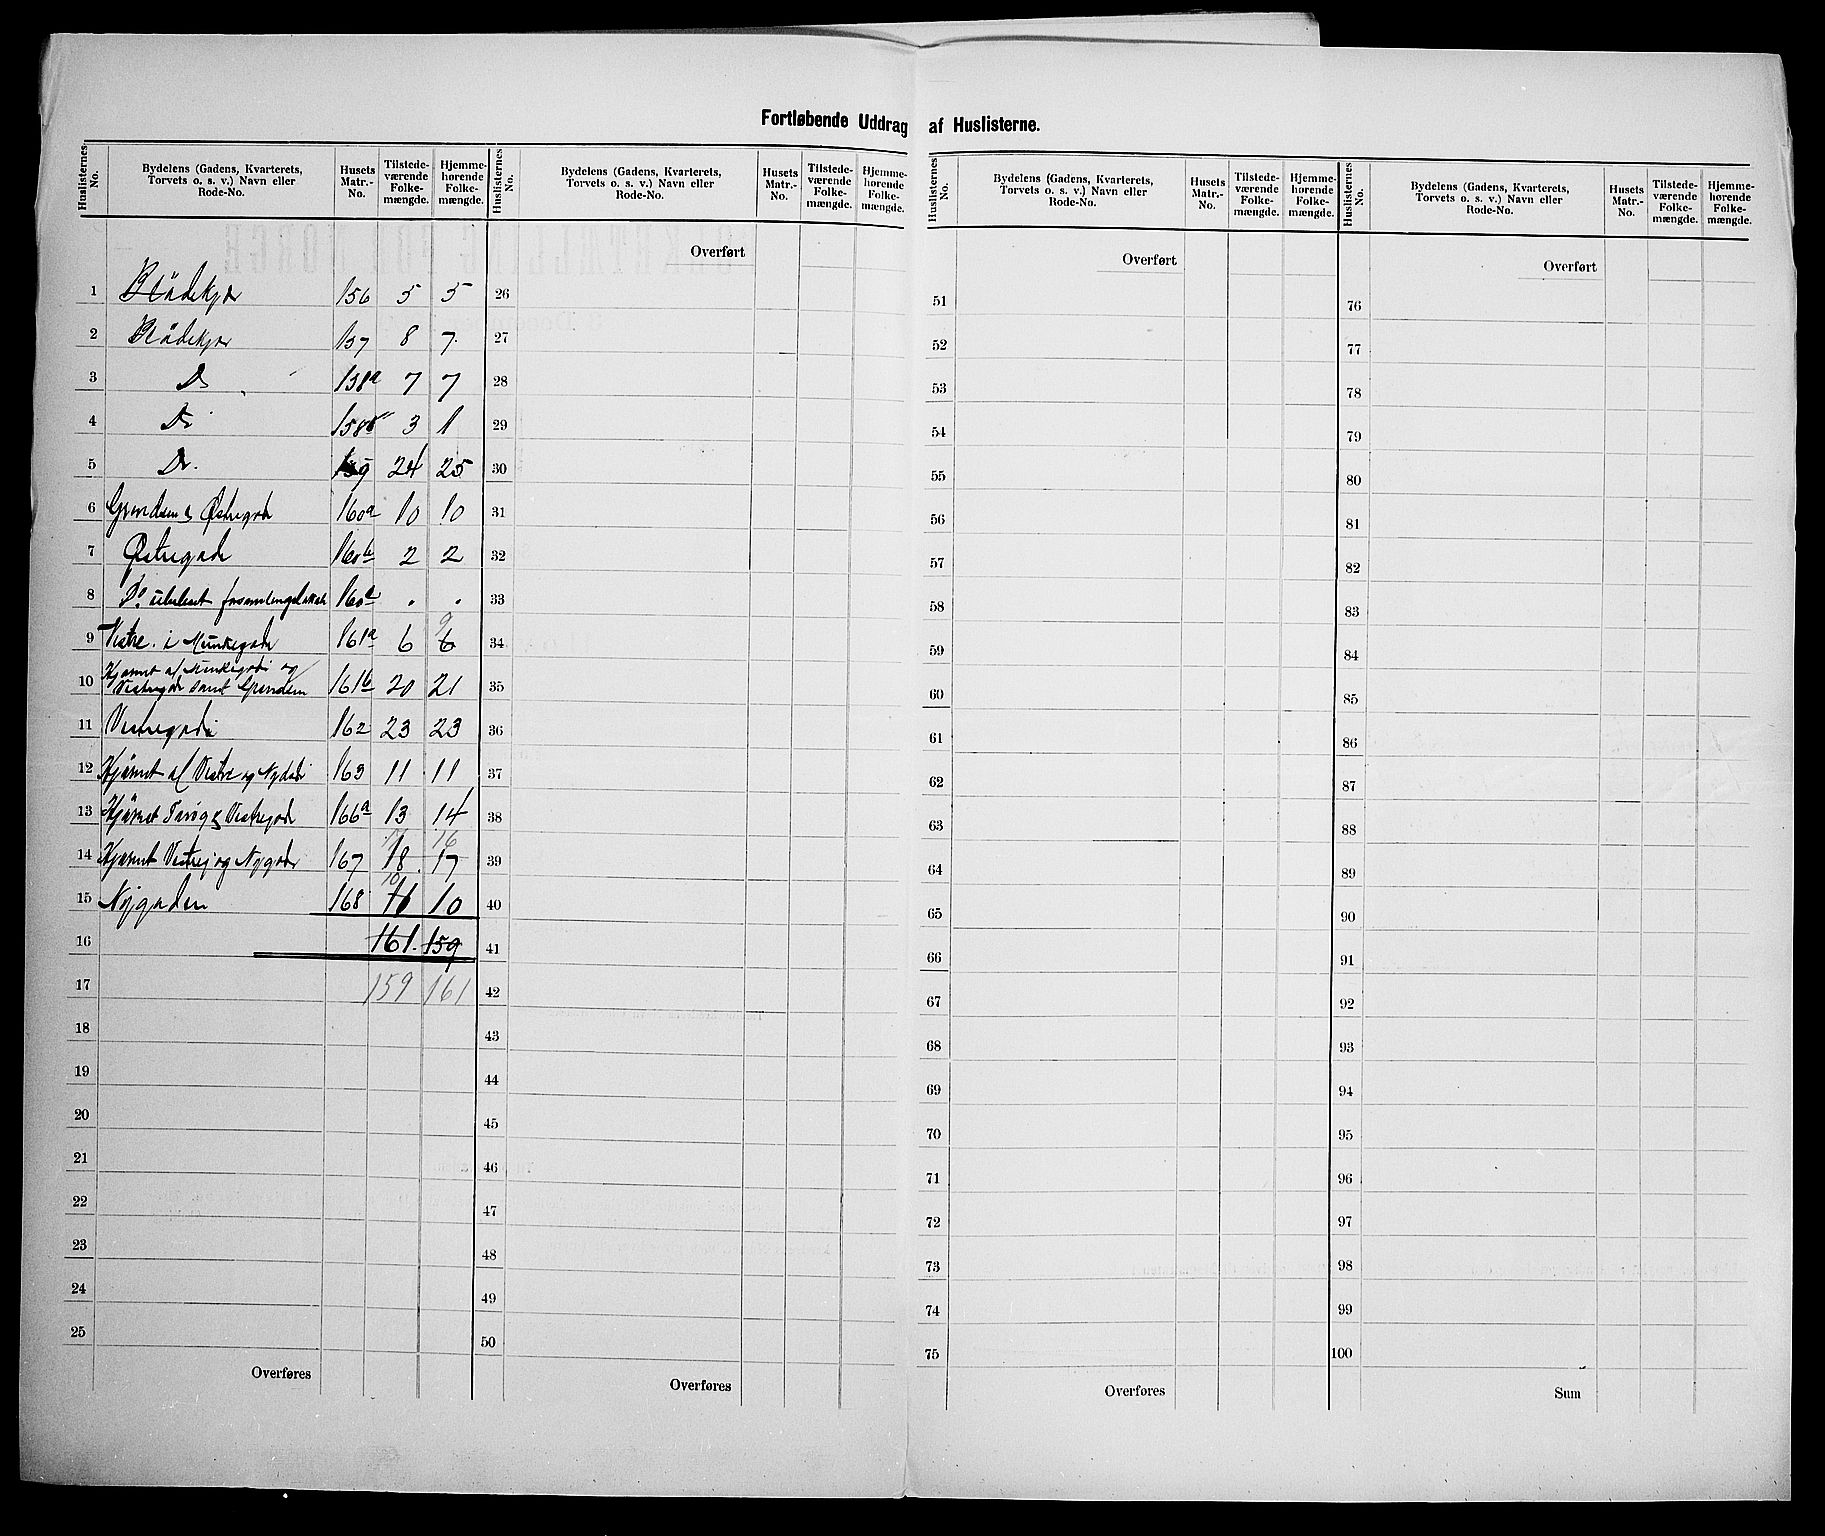 Fortløbende Uddrag af Huslisterne.
Huslisternes No. | Bydelens (Gadens, Kvarterets, Torvets o. s. v.) Navn eller Rode-No. | Husets Matr.-No. | Tilstedeværende Folkemængde. | Hjemmehørende Folkemængde. | Huslisternes No. | Bydelens (Gadens, Kvarterets, Torvets o. s. v.) Navn eller Rode-No. | Husets Matr.-No. | Tilstedeværende Folkemængde. | Hjemmehørende Folkemængde. | Huslisternes No. | Bydelens (Gadens, Kvarterets, Torvets o. s. v.) Navn eller Rode-No. | Husets Matr.-No. | Tilstedeværende Folkemængde. | Hjemmehørende Folkemængde. | Huslisternes No. | Bydelens (Gadens, Kvarterets, Torvets o. s. v.) Navn eller Rode-No. | Husets Matr.-No. | Tilstedeværende Folkemængde. | Hjemmehørende Folkemængde.
Overført Overført Overført
1 Blödekjær 156 5 5 26 51 76
2 Blödekjær 157 8 7 27 52 77
3 Do 158a 7 7 28 53 78
4 Do 158b 3 1 29 54 79
5 Do. 159 24 25 30 55 80
6 Grændsen & Østregade 160a 10 10 31 56 81
7 Østregade 160b 2 2 32 57 82
8 Do. forsamlingslokale 160a . . 33 58 83
9 Vestre. i Munkegade 161a 6 6 9 34 59 84
10 Hjørnet af Munkegade og Vestregade samt Grændsen 161b 20 21 35 60 85
11 Vestregade 162 23 23 36 61 86
12 Hjørnet af Vestre og Nygade 163 11 11 37 62 87
13 Hjørnet & Vestregade 166a 13 14 38 63 88
14 Hjørnet Vestre og Nygade 167 18 17 17 16 39 64 89
15 Nygaden 168 11 10 10 40 65 90
16 161. 159 41 66 91
17 159 161 42 67 92
18 43 68 93
19 44 69 94
20 45 70 95
21 46 71 96
22 47 72 97
23 48 73 98
24 49 74 99
25 50 75 100
Overføres Overføres Overføres Sum